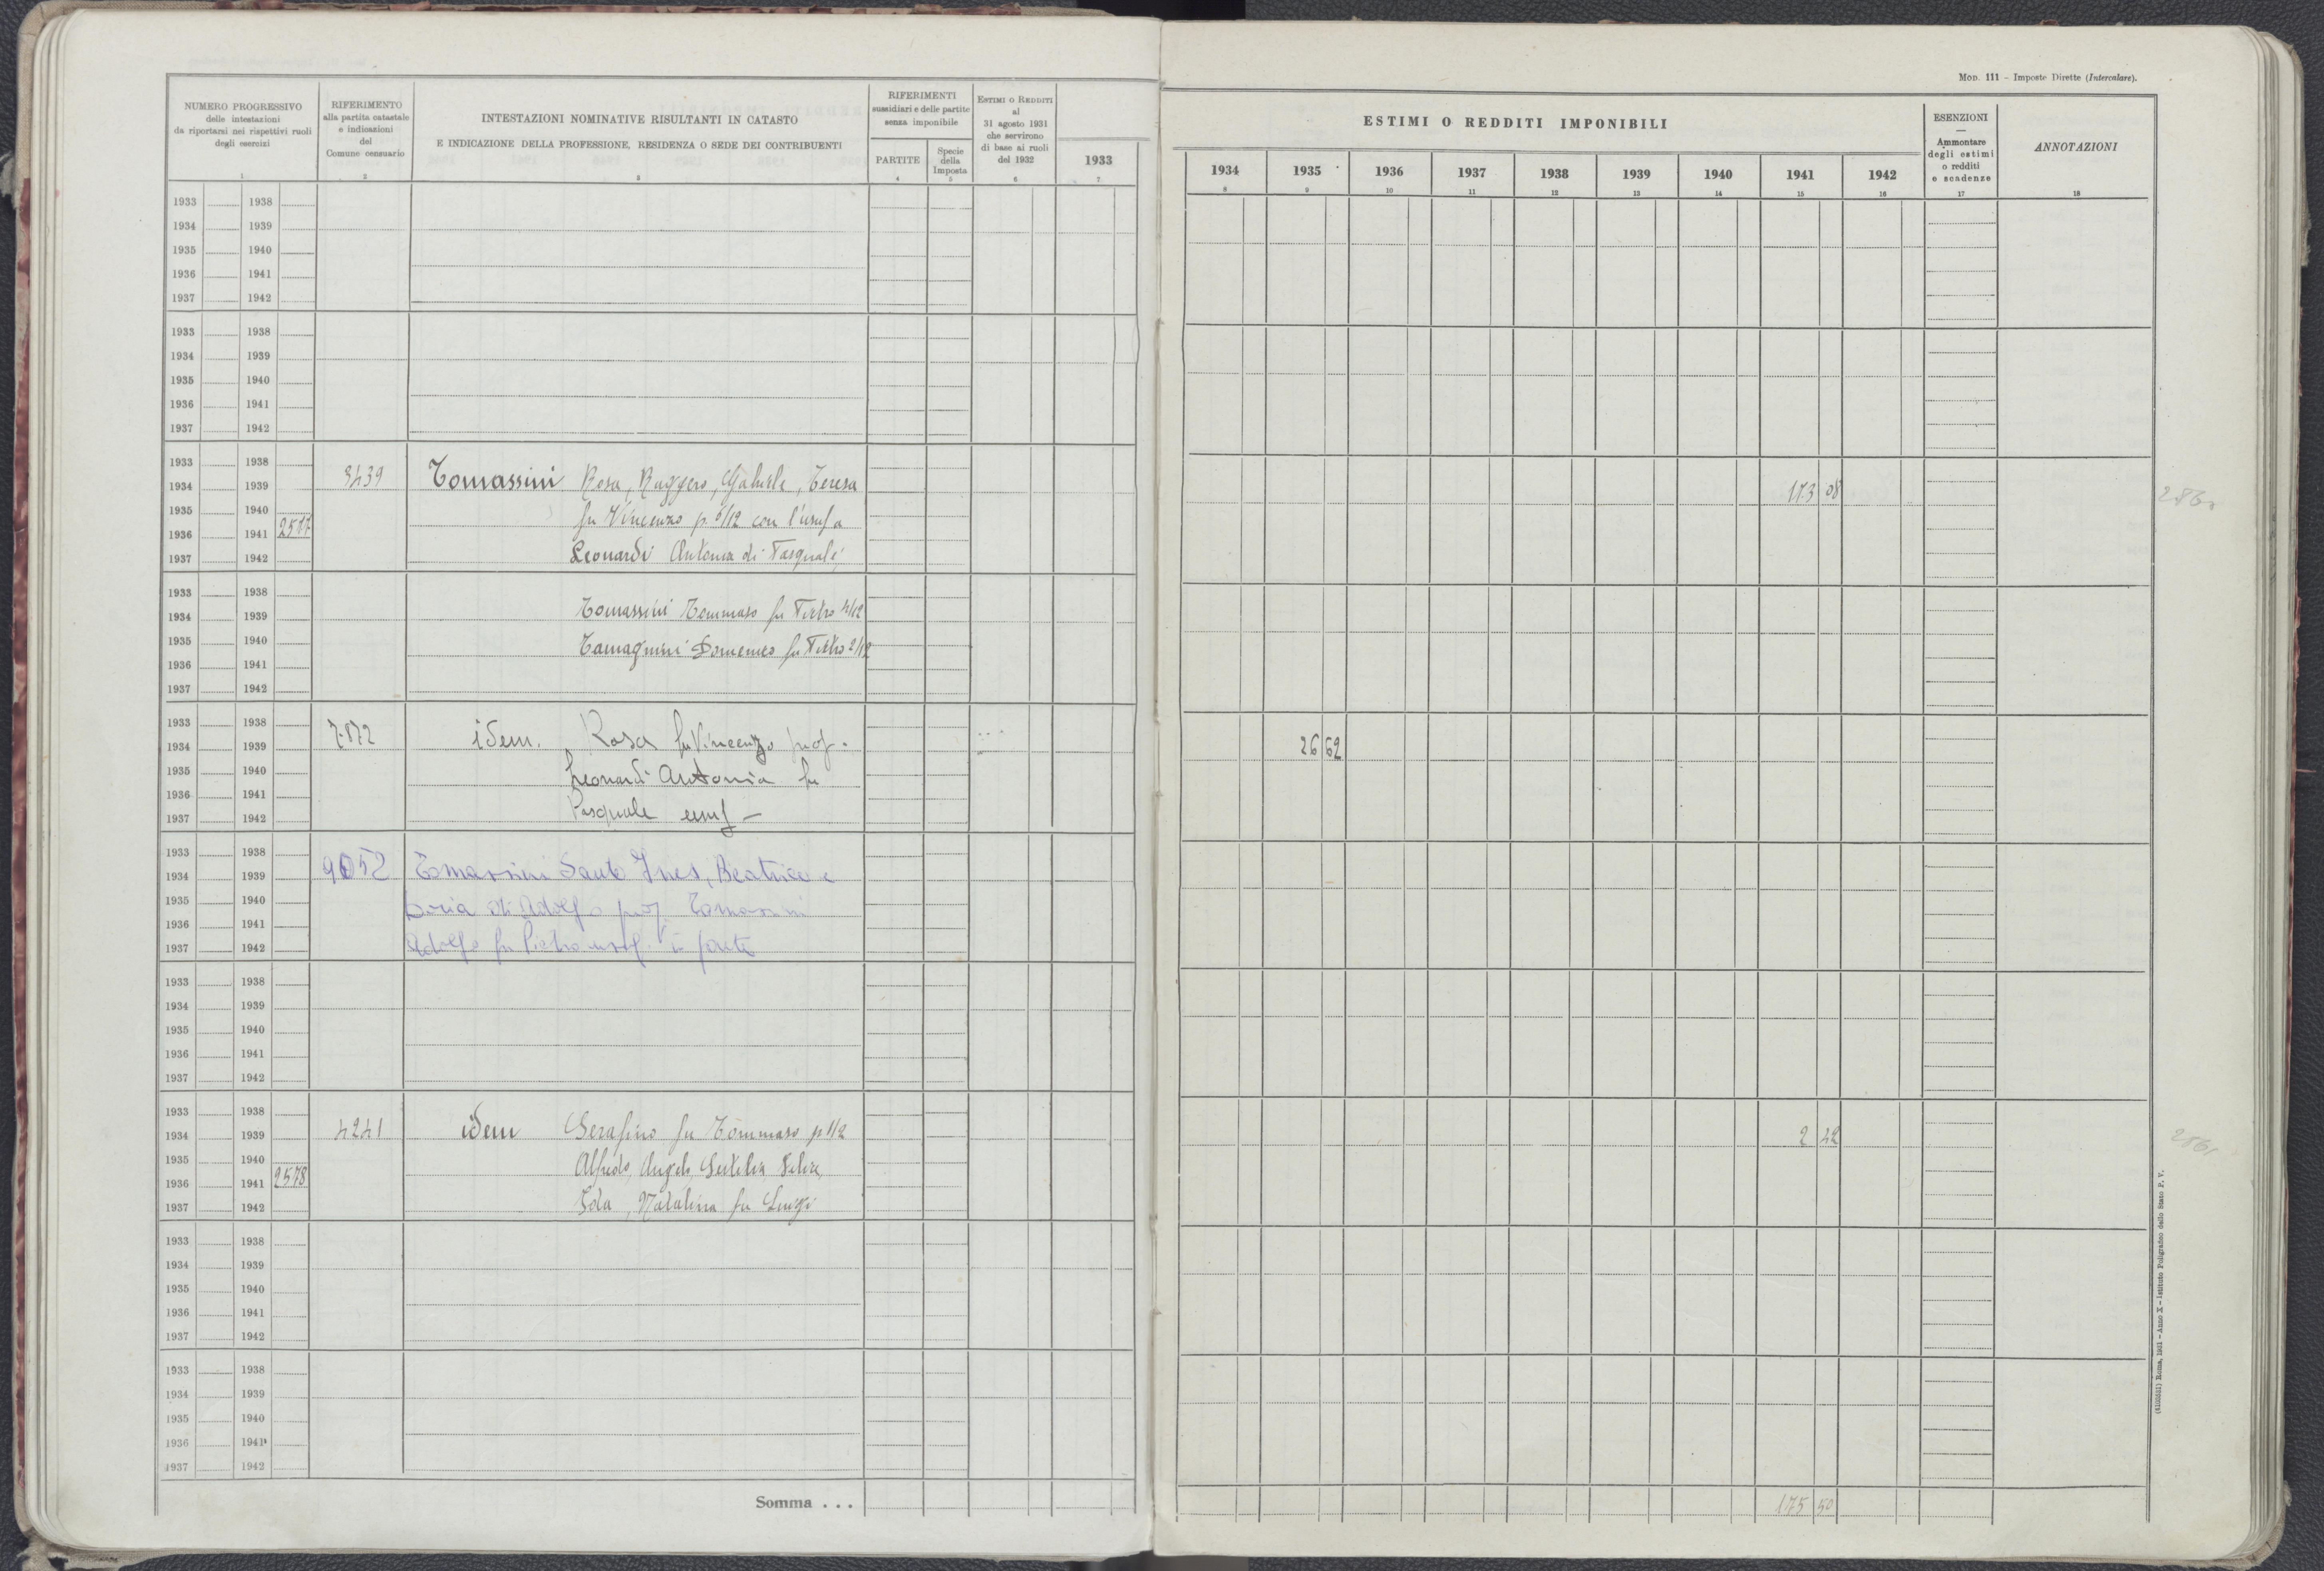 Mod. 111 - Imposte Dirette (Intercalare).
NUMERO PROGRESSIVO
delle intestazioni
da riportarsi nei rispettivi ruoli
degli esercizi
1
RIFERIMENTO
alla partita catastale
e indicazioni
del
Comune censuario
2
INTESTAZIONI NOMINATIVE RISULTANTI IN CATASTO
E INDICAZIONE DELLA PROFESSIONE, RESIDENZA O SEDE DEI CONTRIBUENTI
3
RIFERIMENTI
sussidiari e delle partite
senza imponibile
PARTITE
4
Specie
della
Imposta
5
ESTIMI O REDDITI
al
31 agosto 1931
che servirono
di base ai ruoli
del 1932
6
1933
7
ESTIMI O REDDITI IMPONIBILI
1934 1935 1936 1937 1938 1939 1940 1941 1942
8 9 10 11 12 13 14 15 16
ESENZIONI
—
Ammontare
degli estimi
o redditi
e scadenze
17
ANNOTAZIONI
18
1933 1938
1934 1939
1935 1940
1936 1941
1937 1942
1933 1938
1934 1939
1935 1940
1936 1941
1937 1942
1933 1938
1934 1939 3439 Tomassini Rosa, Ruggero, Gabriele, Teresa 173 08
1935 1940 fu Vincenzo p. 6/12 con l'usuf a
1936 1941 2577
1937 1942 Leonardi Antonia di Pasquale
1933 1938
1934 1939 Tomassini Tommaso fu Pietro 4/12
1935 1940 Tamagnini Domenico fu Pietro 2/12
1936 1941
1937 1942
1933 1938
1934 1939 7872 idem. Rosa fu Vincenzo prop. 26 62
1935 1940 Leonardi Antonia fu
1936 1941
1937 1942 Pasquale usuf -
1933 1938
1934 1939 9052 Tomassini Santo Ines, Beatrice e
1935 1940 Doria di Adolfo prop. Tomassini
1936 1941
1937 1942 Adolfo fu Pietro usuf. in parte
1933 1938
1934 1939
1935 1940
1936 1941
1937 1942
1933 1938
1934 1939 4241 idem Serafino fu Tommaso p 1/2 2 42
1935 1940 Alfredo, Angelo,
1936 1941 2578
1937 1942 Ida, Natalina fu Luigi
1933 1938
1934 1939
1935 1940
1936 1941
1937 1942
1933 1938
1934 1939
1935 1940
1936 1941
1937 1942
Somma . . . 175 50
2861
(4100851) Roma, 1931 - Anno X - Istituto Poligrafico dello Stato P. V.